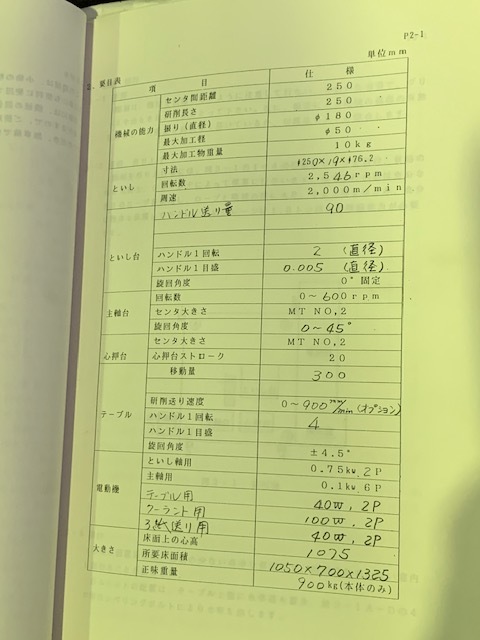 P2-1
単位mm
2.要目表
項目 仕様
機械の能力 センタ間距離 250
研削長さ 250
振り(直径) φ180
最大加工径 φ50
最大加工物重量 10kg
といし 寸法 φ250×19×φ76.2
回転数 2,546rpm
周速 2,000m/min
といし台 ハンドル送り量 90
ハンドル1回転 2 (直径)
ハンドル1目盛 0.005 (直径)
旋回角度 0°固定
主軸台 回転数 0~600rpm
センタ大きさ MT NO,2
旋回角度 0~45°
心押台 センタ大きさ MT NO,2
心押台ストローク 20
テーブル 移動量 300
研削送り速度 0~900mm/min(オプション)
ハンドル1回転 4
ハンドル1目盛
旋回角度 ±4.5°
電動機 といし軸用 0.75kw,2P
主軸用 0.1kw,6P
テーブル用 40W,2P
クーラント用 100W,2P
送り用 40W,2P
大きさ 床面上の心高 1075
所要床面積 1050×700×1325
正味重量 900kg(本体のみ)